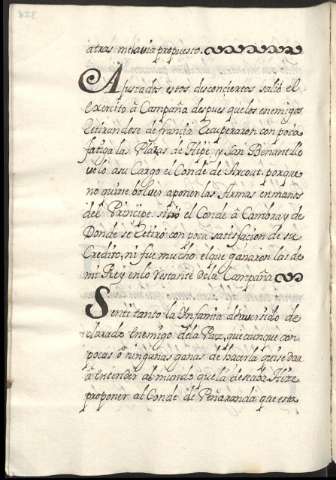 atras me havia propuesto.
Ajustados estos desconciertos salió el
Exercito à Campaña despues que los enemigos
retirandose de francia recuperaron con poca
fatiga las Plazas de Hepe y San Benantello
dolo à su Cargo el Conde de Arcourt, porque
no quise bolver à poner las Armas en manos
del Principe sitió el Conde à Cambray de
Donde se retiró con poca satisfacion de su
Credito, ni fue mucho el que ganaron las de
mi Rey en lo restante de la Campaña.
Sentí tanto la Infamia de haver sido de
clarado Enemigo de la Paz, que aunque con
pocas ò ningunas ganas de hacerla quise dar
à entender al mundo que la deseaba Hize
proponer al Conde de Peñaranda que esta